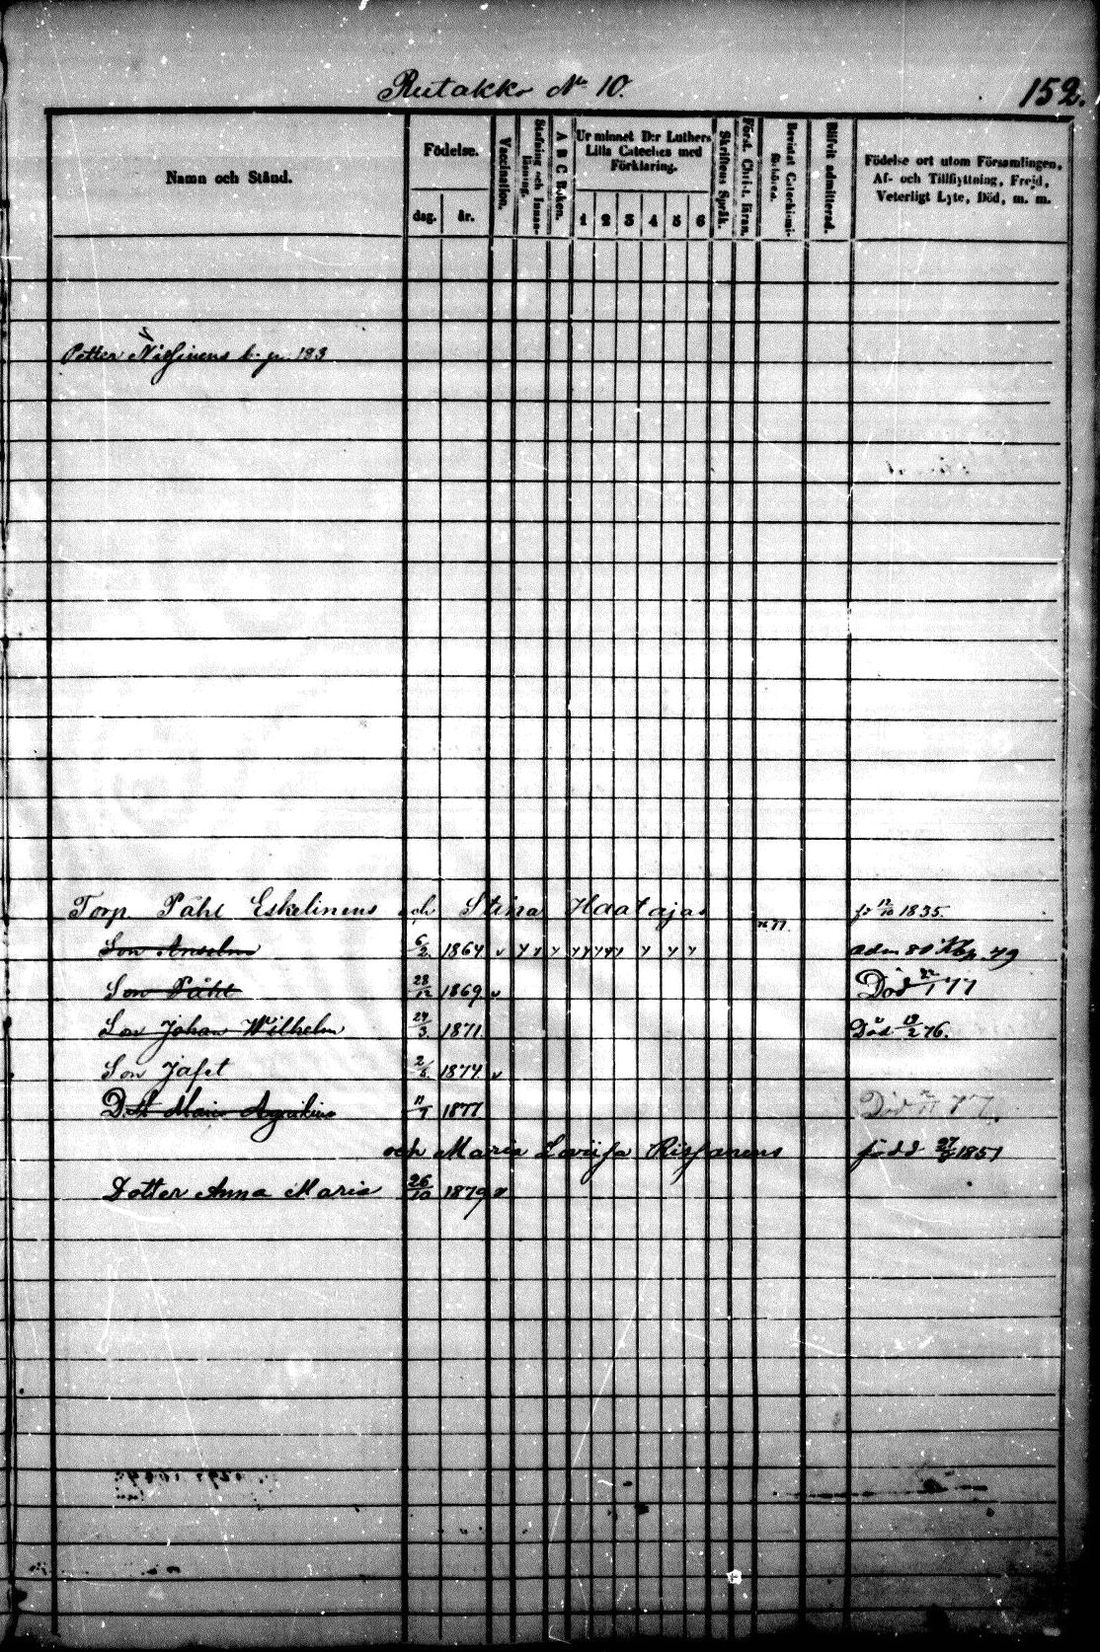 Rutakko No 10. 152.
Namn och Stånd.
Födelse.
dag. år.
Vaccination.
Stafning och Innanläsning.
A B C Boken.
Ur minnet D:r Luthers Lilla Cateches med Förklaring.
1 2 3 4 5 6
Skriftens Språk.
Först. Christ. läran.
Bevistat Catechismiförhören.
Blifvit admitterad.
Födelse ort utom Församlingen, Af- och Tillflyttning, Frejd, Veterligt Lyte, Död, m. m.
Petter Nissinens b. p. 183
Torp. Påhl Eskelinens och Stina Haatajas f. 12/10 1835.
77.
Son Anselm 6/2. 1864 v y y y y y y y y y y y adm 80 79
Son Påhl 28/12 1869 v Död 22/1 77
Son Johan Wilhelm 24/3. 1871. Död 19/2 76.
Son Jafet 2/8. 1874 v
Dott Maria 11/1 1877 Död 77.
och Maria Lovisa Rissanens född 27/8 1851
Dotter Anna Maria 26/10 1879 v